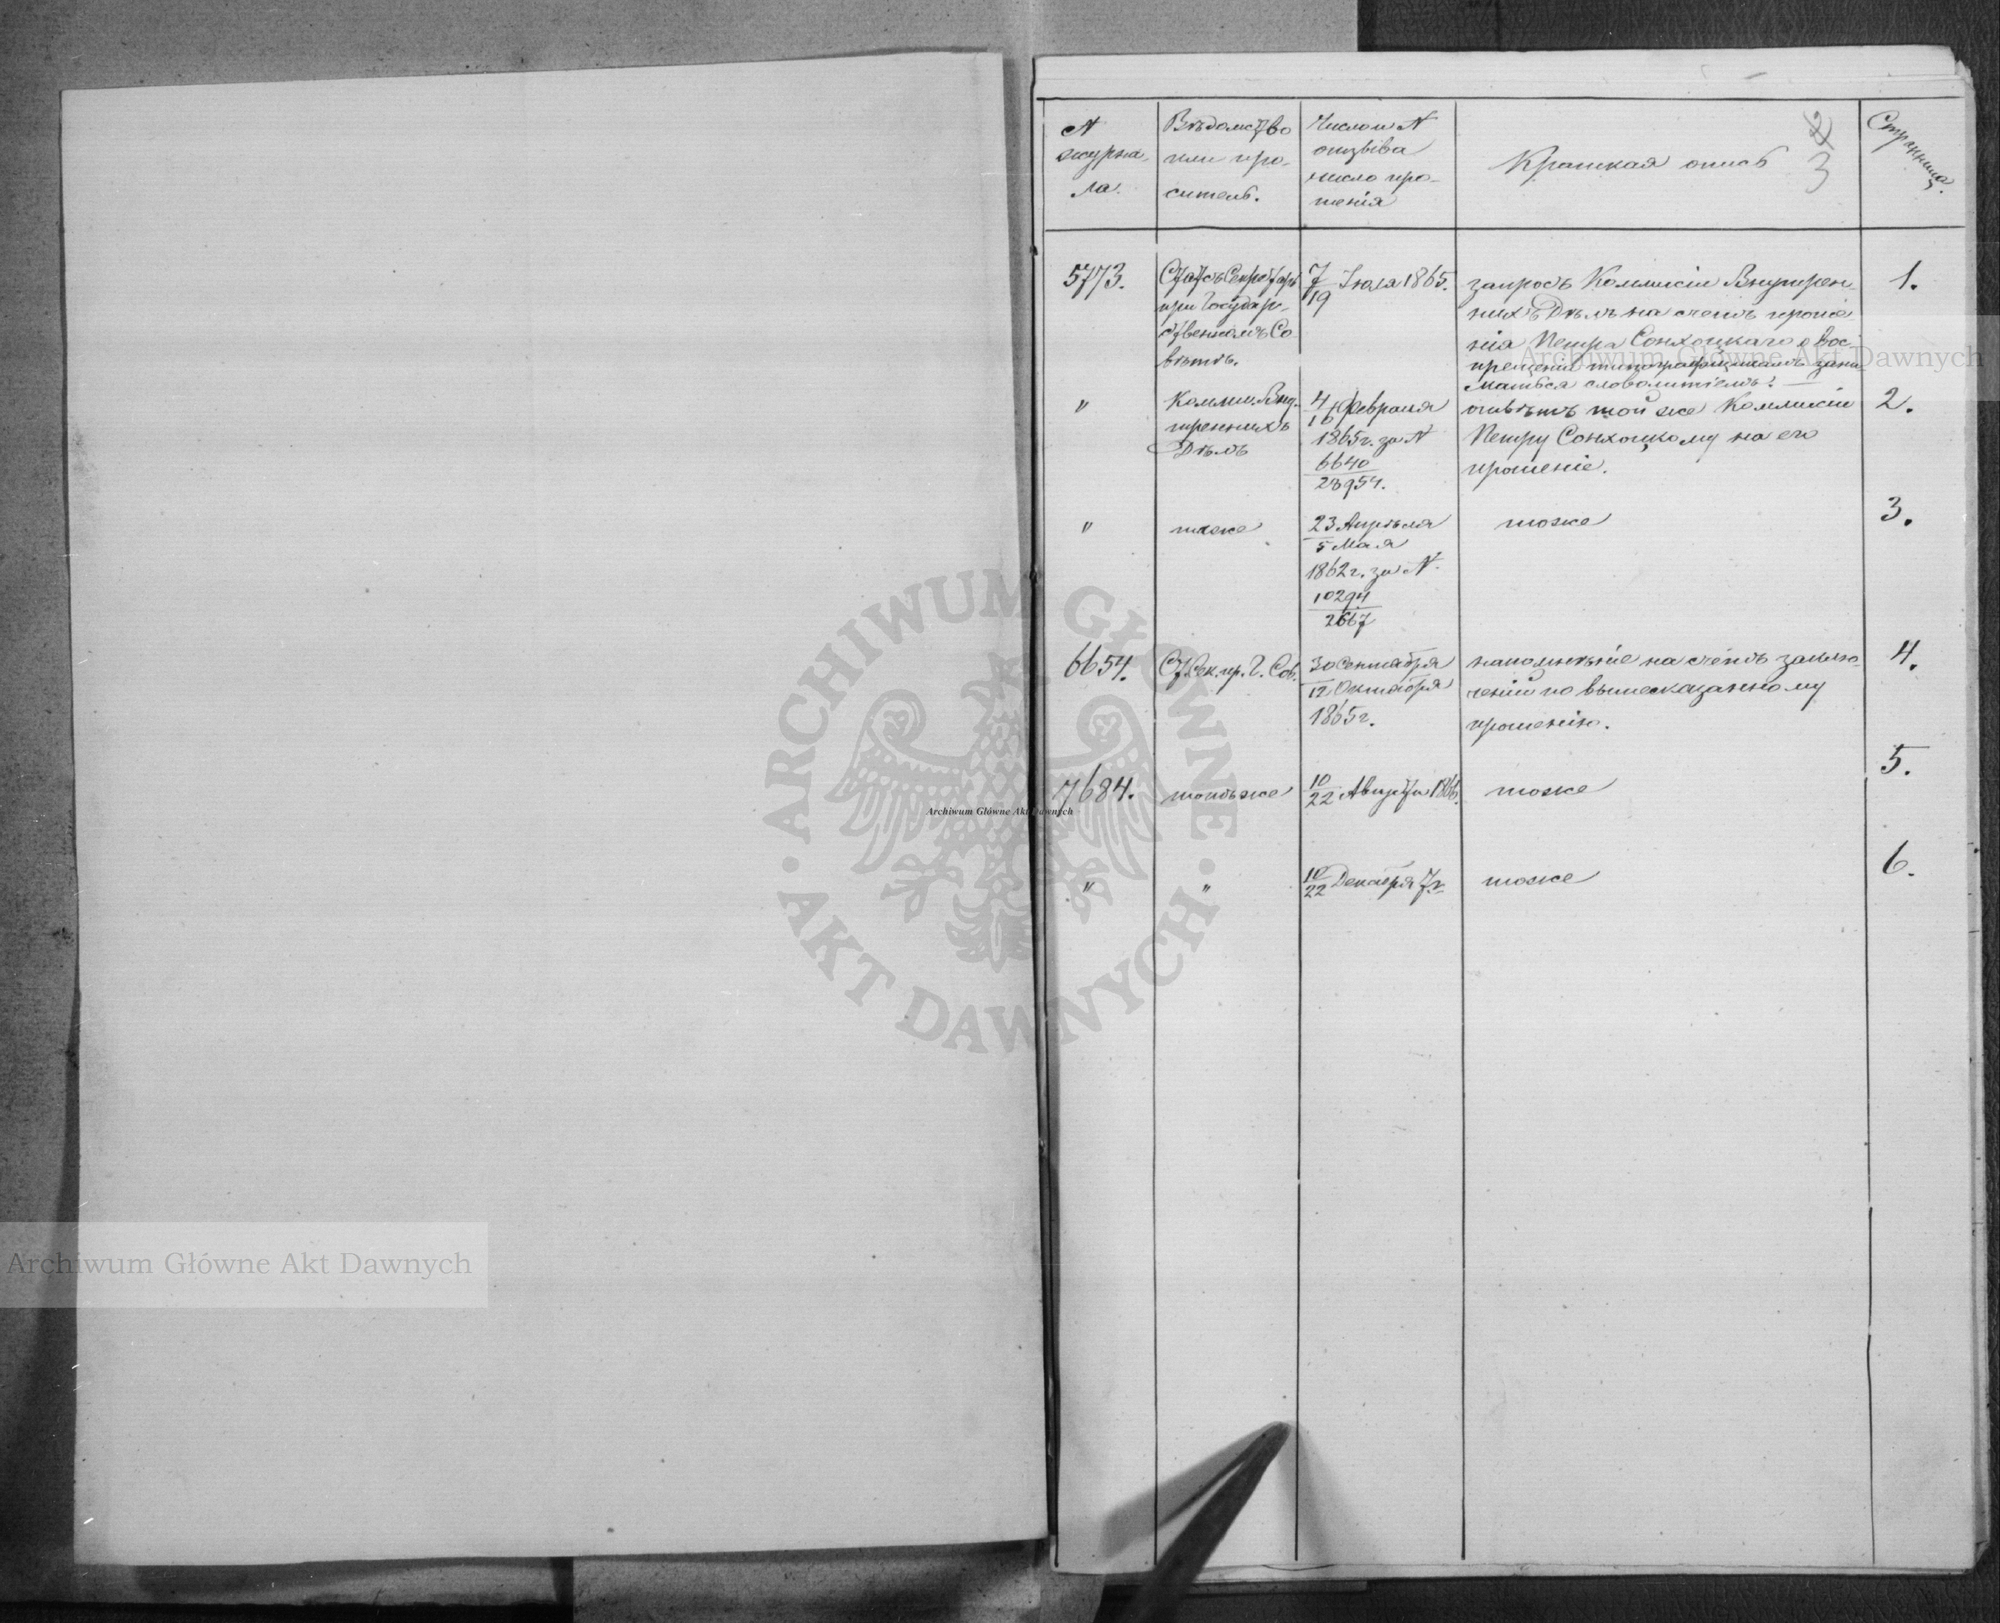 № журна-ла.
Вѣдомство или про-ситель.
Число и № отзыва число про-шенія
Краткая опись
2
3
Страница.
5773.
Статсъ Секретарь
при Государ-
ственномъ Со
вѣтѣ.
7/19 Іюля 1865.
запросъ Коммисіи Внутрен-
нихъ Дѣлъ на счетъ проше
нія Петра Сонхоцкаго о вос-
прещеніи типографщикамъ зани
маться словолитіемъ.
1.
"
Комми. Вну-
тренныхъ
Дѣлъ
4/16 Февраля
1865 г. за №
6640/28954.
отвѣтъ той же Коммисіи
Петру Сонхоцкому на его
прошеніе.
2.
"
тоже
23 Апрѣля
5 Мая
1862 г. за №
10294/2667
тоже
3.
6654.
Ст. Сек. пр. Г. Сов.
30 Сентября
12 Октября
1865 г.
напомнѣніе на счетъ заклю-
ченія по вышесказанному
прошенію.
4.
7684.
тотъ же
10/22 Августа 1866.
тоже
5.
"
"
10/22 Декабря
тоже
6.
ARCHIWUM GŁÓWNE · AKT DAWNYCH ·
Archiwum Główne Akt Dawnych
Archiwum Główne Akt Dawnych
Archiwum Główne Akt Dawnych